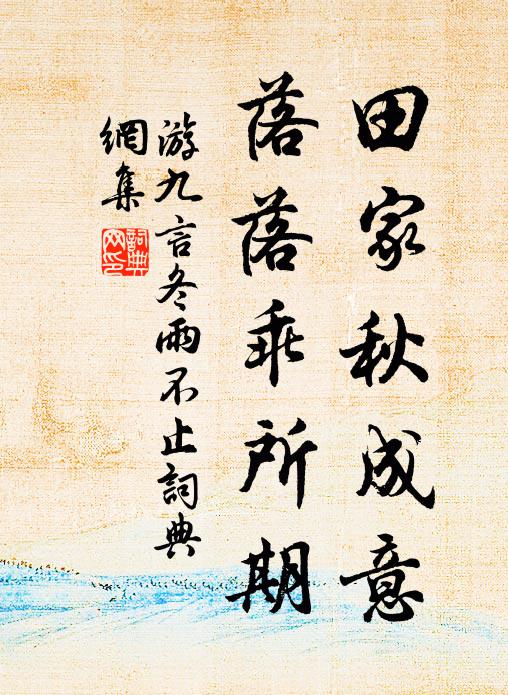 田家秋成意
落落乖所期
游九言冬雨不止詞典
網集
詞典
网印